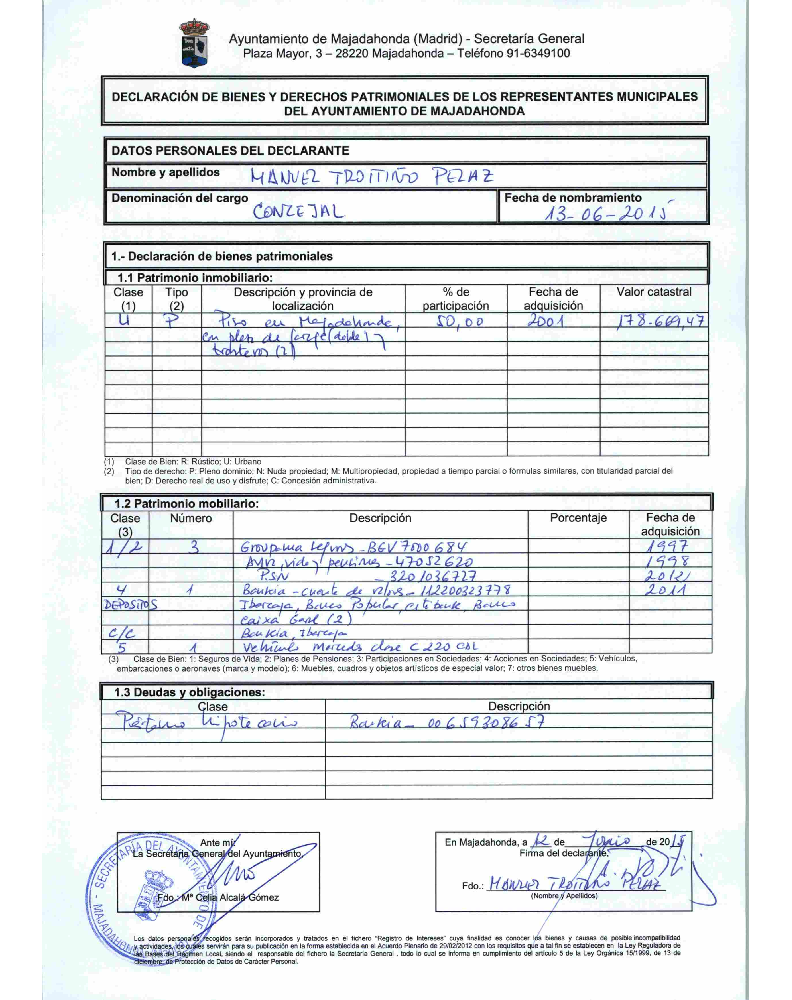 Ayuntamiento de Majadahonda (Madrid) - Secretaría General
Plaza Mayor, 3 – 28220 Majadahonda – Teléfono 91-6349100
DECLARACIÓN DE BIENES Y DERECHOS PATRIMONIALES DE LOS REPRESENTANTES MUNICIPALES
DEL AYUNTAMIENTO DE MAJADAHONDA
DATOS PERSONALES DEL DECLARANTE
Nombre y apellidos MANUEL TROITIÑO PELAZ
Denominación del cargo CONCEJAL
Fecha de nombramiento 13-06-2015
1.- Declaración de bienes patrimoniales
1.1 Patrimonio inmobiliario:
Clase (1) Tipo (2) Descripción y provincia de localización % de participación Fecha de adquisición Valor catastral
U P Piso en Majadahonda, 50,00 2001 178.669,47
en plaza de garaje (doble) y
trasteros (2)
(1) Clase de Bien: R: Rústico; U: Urbano
(2) Tipo de derecho: P: Pleno dominio; N: Nuda propiedad; M: Multipropiedad, propiedad a tiempo parcial o fórmulas similares, con titularidad parcial del
bien; D: Derecho real de uso y disfrute; C: Concesión administrativa.
1.2 Patrimonio mobiliario:
Clase (3) Número Descripción Porcentaje Fecha de adquisición
1/2 3 Groupama Seguros - BGV 7500 684 1997
vida y pensiones - 47052620 1998
P.S.N - 3201036727 2012
4 1 Bankia - cuenta de valores - 112200323778 2011
DEPOSITOS Ibercaja, Banco Popular, citibank, Banco
Caixa Geral (2)
C/C Bankia, Ibercaja
5 1 Vehículo Mercedes clase C 220 CDI
(3) Clase de Bien: 1: Seguros de Vida; 2: Planes de Pensiones; 3: Participaciones en Sociedades; 4: Acciones en Sociedades; 5: Vehículos,
embarcaciones o aeronaves (marca y modelo); 6: Muebles, cuadros y objetos artísticos de especial valor; 7: otros bienes muebles.
1.3 Deudas y obligaciones:
Clase Descripción
Préstamo hipotecario Bankia - 006593086 57
Ante mí:
La Secretaria General del Ayuntamiento,
Fdo.: Mª Celia Alcalá Gómez
En Majadahonda, a 12 de Junio de 2015
Firma del declarante,
Fdo.: MANUEL TROITIÑO PELAZ
(Nombre y Apellidos)
Los datos personales recogidos serán incorporados y tratados en el fichero "Registro de Intereses" cuya finalidad es conocer los bienes y causas de posible incompatibilidad
y actividades, los cuales servirán para su publicación en la forma establecida en el Acuerdo Plenario de 29/02/2012 con los requisitos que a tal fin se establecen en la Ley Reguladora de
las Bases del Régimen Local, siendo el responsable del fichero la Secretaría General, todo lo cual se informa en cumplimiento del artículo 5 de la Ley Orgánica 15/1999, de 13 de
diciembre, de Protección de Datos de Carácter Personal.